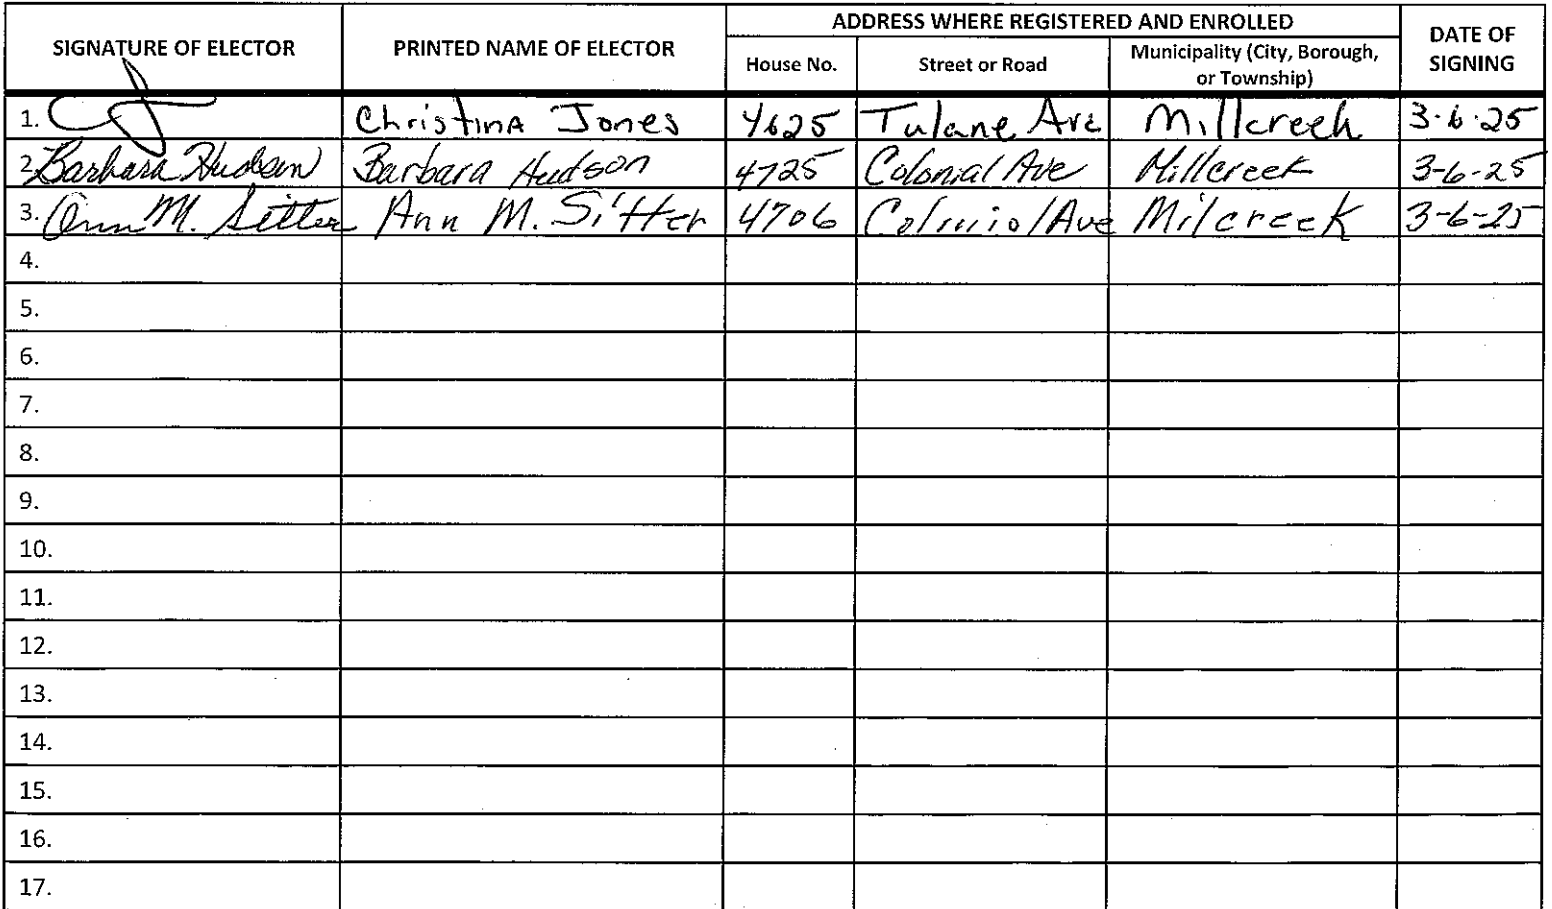 SIGNATURE OF ELECTOR PRINTED NAME OF ELECTOR ADDRESS WHERE REGISTERED AND ENROLLED DATE OF SIGNING
House No. Street or Road Municipality (City, Borough, or Township)
1. Christina Jones 4625 Tulane Ave Millcreek 3-6-25
2. Barbara Hudson Barbara Hudson 4725 Colonial Ave Millcreek 3-6-25
3. Ann M. Sitter Ann M. Sitter 4706 Colonial Ave Milcreek 3-6-25
4.
5.
6.
7.
8.
9.
10.
11.
12.
13.
14.
15.
16.
17.